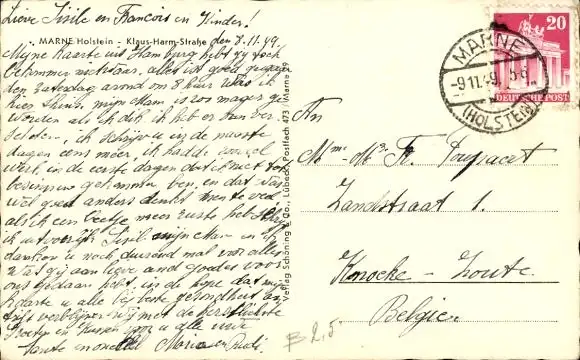 Lieve Sisile en Francois en Kinder!
MARNE Holstein - Klaus-Harm-Straße
den 8.11.49.
Mijne Kaarte uit Hamburg hebt gij toch
bekommen nietwaar, alles is goed gegaan
den Zaterdag avond om 8 huur was ik
hier thuis, mijn Man is zoo mager ge-
worden als ik dik ik heb er van ver-
, ik schrijve u in de naaste
dagen eens meer, ik hadde zooveel
werk, in de eerste dagen dat ik niet tot
besinnen gekommen ben, en dat was
wel goed anders denkt men te veel
als ik een beetje meer ruste heb schrijf
ik uitvoerlijk Sisil mijn Man en ik
danken u noch duizend mal voor alles
was gij aan lieve and goedes voor
ons gedaan hebt, in de hope dat mijn
Karte u alle bij beste gesondheit an-
trift verblijven wij met de herzlichste
Groeten en Kussen voor u alle
tante Maria en Rudi.
Verlag Schöning & Co., Lübeck, Postfach 473 / Marne 29
20
DEUTSCHE POST
MARNE
-9.11.49.
(HOLSTEIN)
An
Mme Mr Fr.
Zandstraat 1.
Knocke - Zoute.
Belgien
B 2.5.